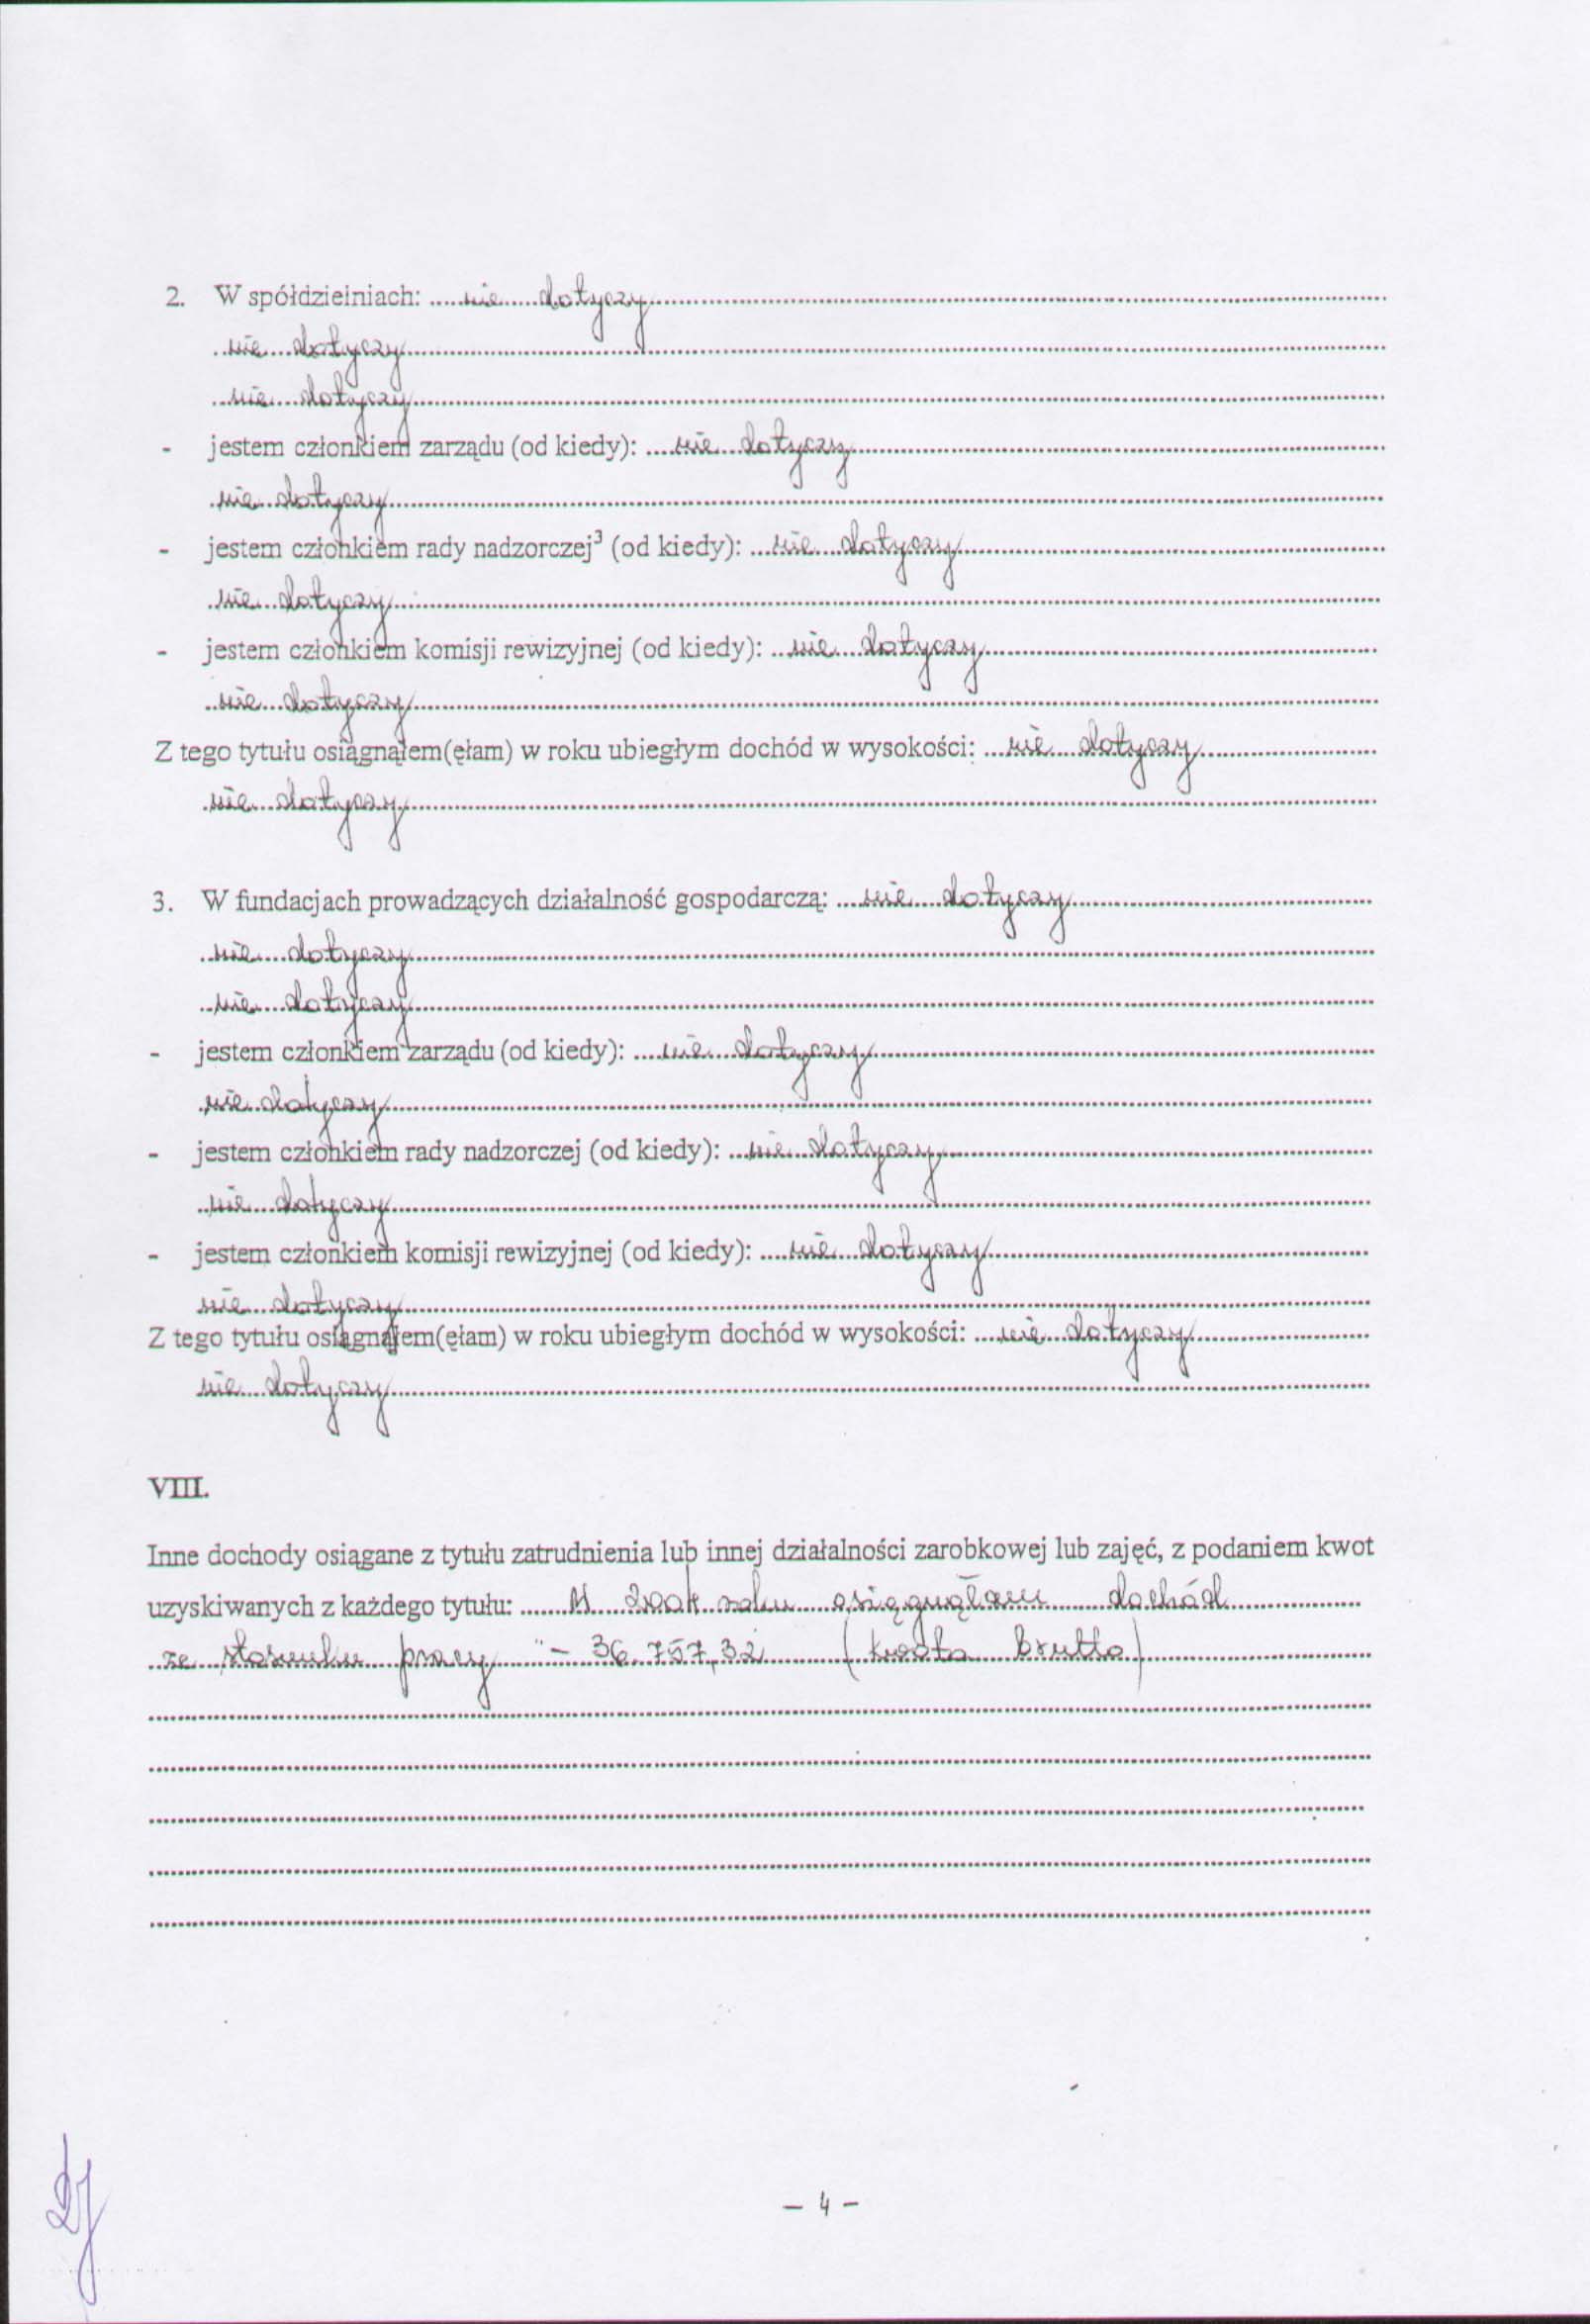 2. W spółdzielniach: nie dotyczy
nie dotyczy
nie dotyczy
- jestem członkiem zarządu (od kiedy): nie dotyczy
nie dotyczy
- jestem członkiem rady nadzorczej³ (od kiedy): nie dotyczy
nie dotyczy
- jestem członkiem komisji rewizyjnej (od kiedy): nie dotyczy
nie dotyczy
Z tego tytułu osiągnąłem(ęłam) w roku ubiegłym dochód w wysokości: nie dotyczy
nie dotyczy
3. W fundacjach prowadzących działalność gospodarczą: nie dotyczy
nie dotyczy
nie dotyczy
- jestem członkiem zarządu (od kiedy): nie dotyczy
nie dotyczy
- jestem członkiem rady nadzorczej (od kiedy): nie dotyczy
nie dotyczy
- jestem członkiem komisji rewizyjnej (od kiedy): nie dotyczy
nie dotyczy
Z tego tytułu osiągnąłem(ęłam) w roku ubiegłym dochód w wysokości: nie dotyczy
nie dotyczy
VIII.
Inne dochody osiągane z tytułu zatrudnienia lub innej działalności zarobkowej lub zajęć, z podaniem kwot
uzyskiwanych z każdego tytułu: W roku osiągnąłam dochód
ze stosunku pracy - 36.757,32 (kwota brutto)
- 4 -